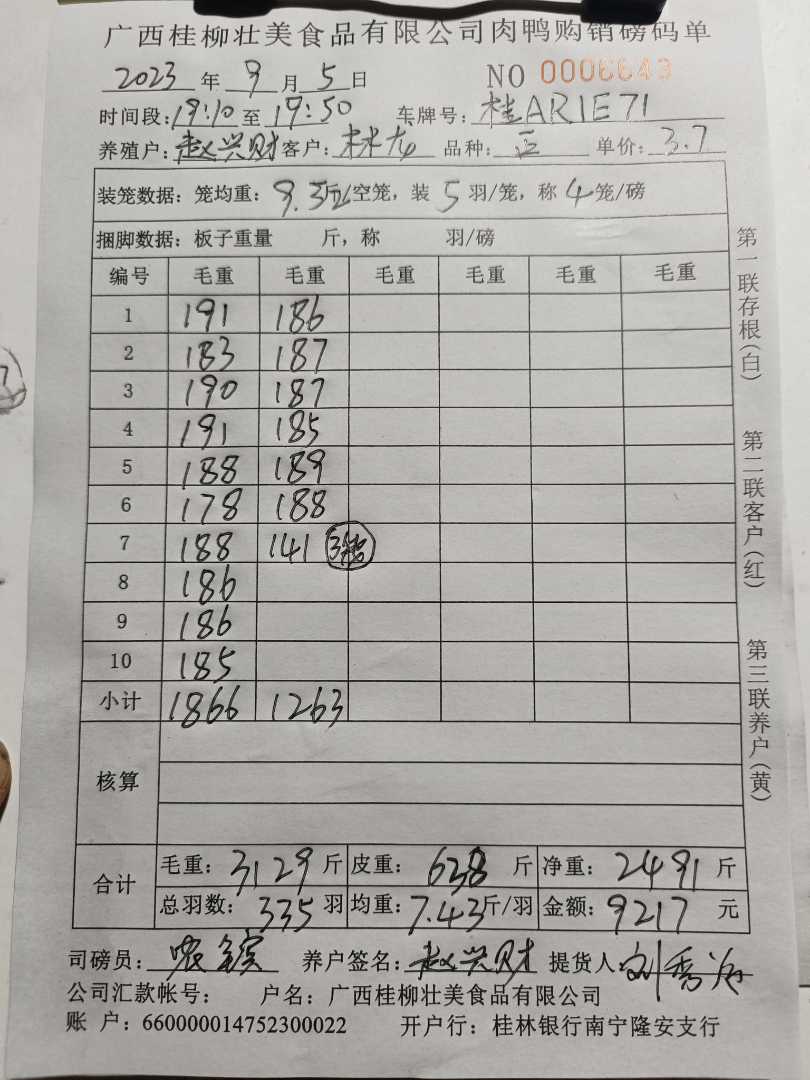 广西桂柳壮美食品有限公司肉鸭购销磅码单
2023 年 9 月 5 日 NO 0006643
时间段: 19:10 至 19:50 车牌号: 桂AR1E71
养殖户: 赵兴财 客户: 林龙 品种: 单价: 3.7
装笼数据: 笼均重: 9.5斤/空笼, 装 5 羽/笼, 称 4 笼/磅
捆脚数据: 板子重量 斤, 称 羽/磅
编号 毛重 毛重 毛重 毛重 毛重 毛重
1 191 186
2 183 187
3 190 187
4 191 185
5 188 189
6 178 188
7 188 141 3笼
8 186
9 186
10 185
小计 1866 1263
核算
合计 毛重: 3129 斤 皮重: 638 斤 净重: 2491 斤
总羽数: 335 羽 均重: 7.43 斤/羽 金额: 9217 元
司磅员: 养户签名: 赵兴财 提货人
公司汇款帐号: 户名: 广西桂柳壮美食品有限公司
账 户: 660000014752300022 开户行: 桂林银行南宁隆安支行
第一联存根(白)
第二联客户(红)
第三联养户(黄)